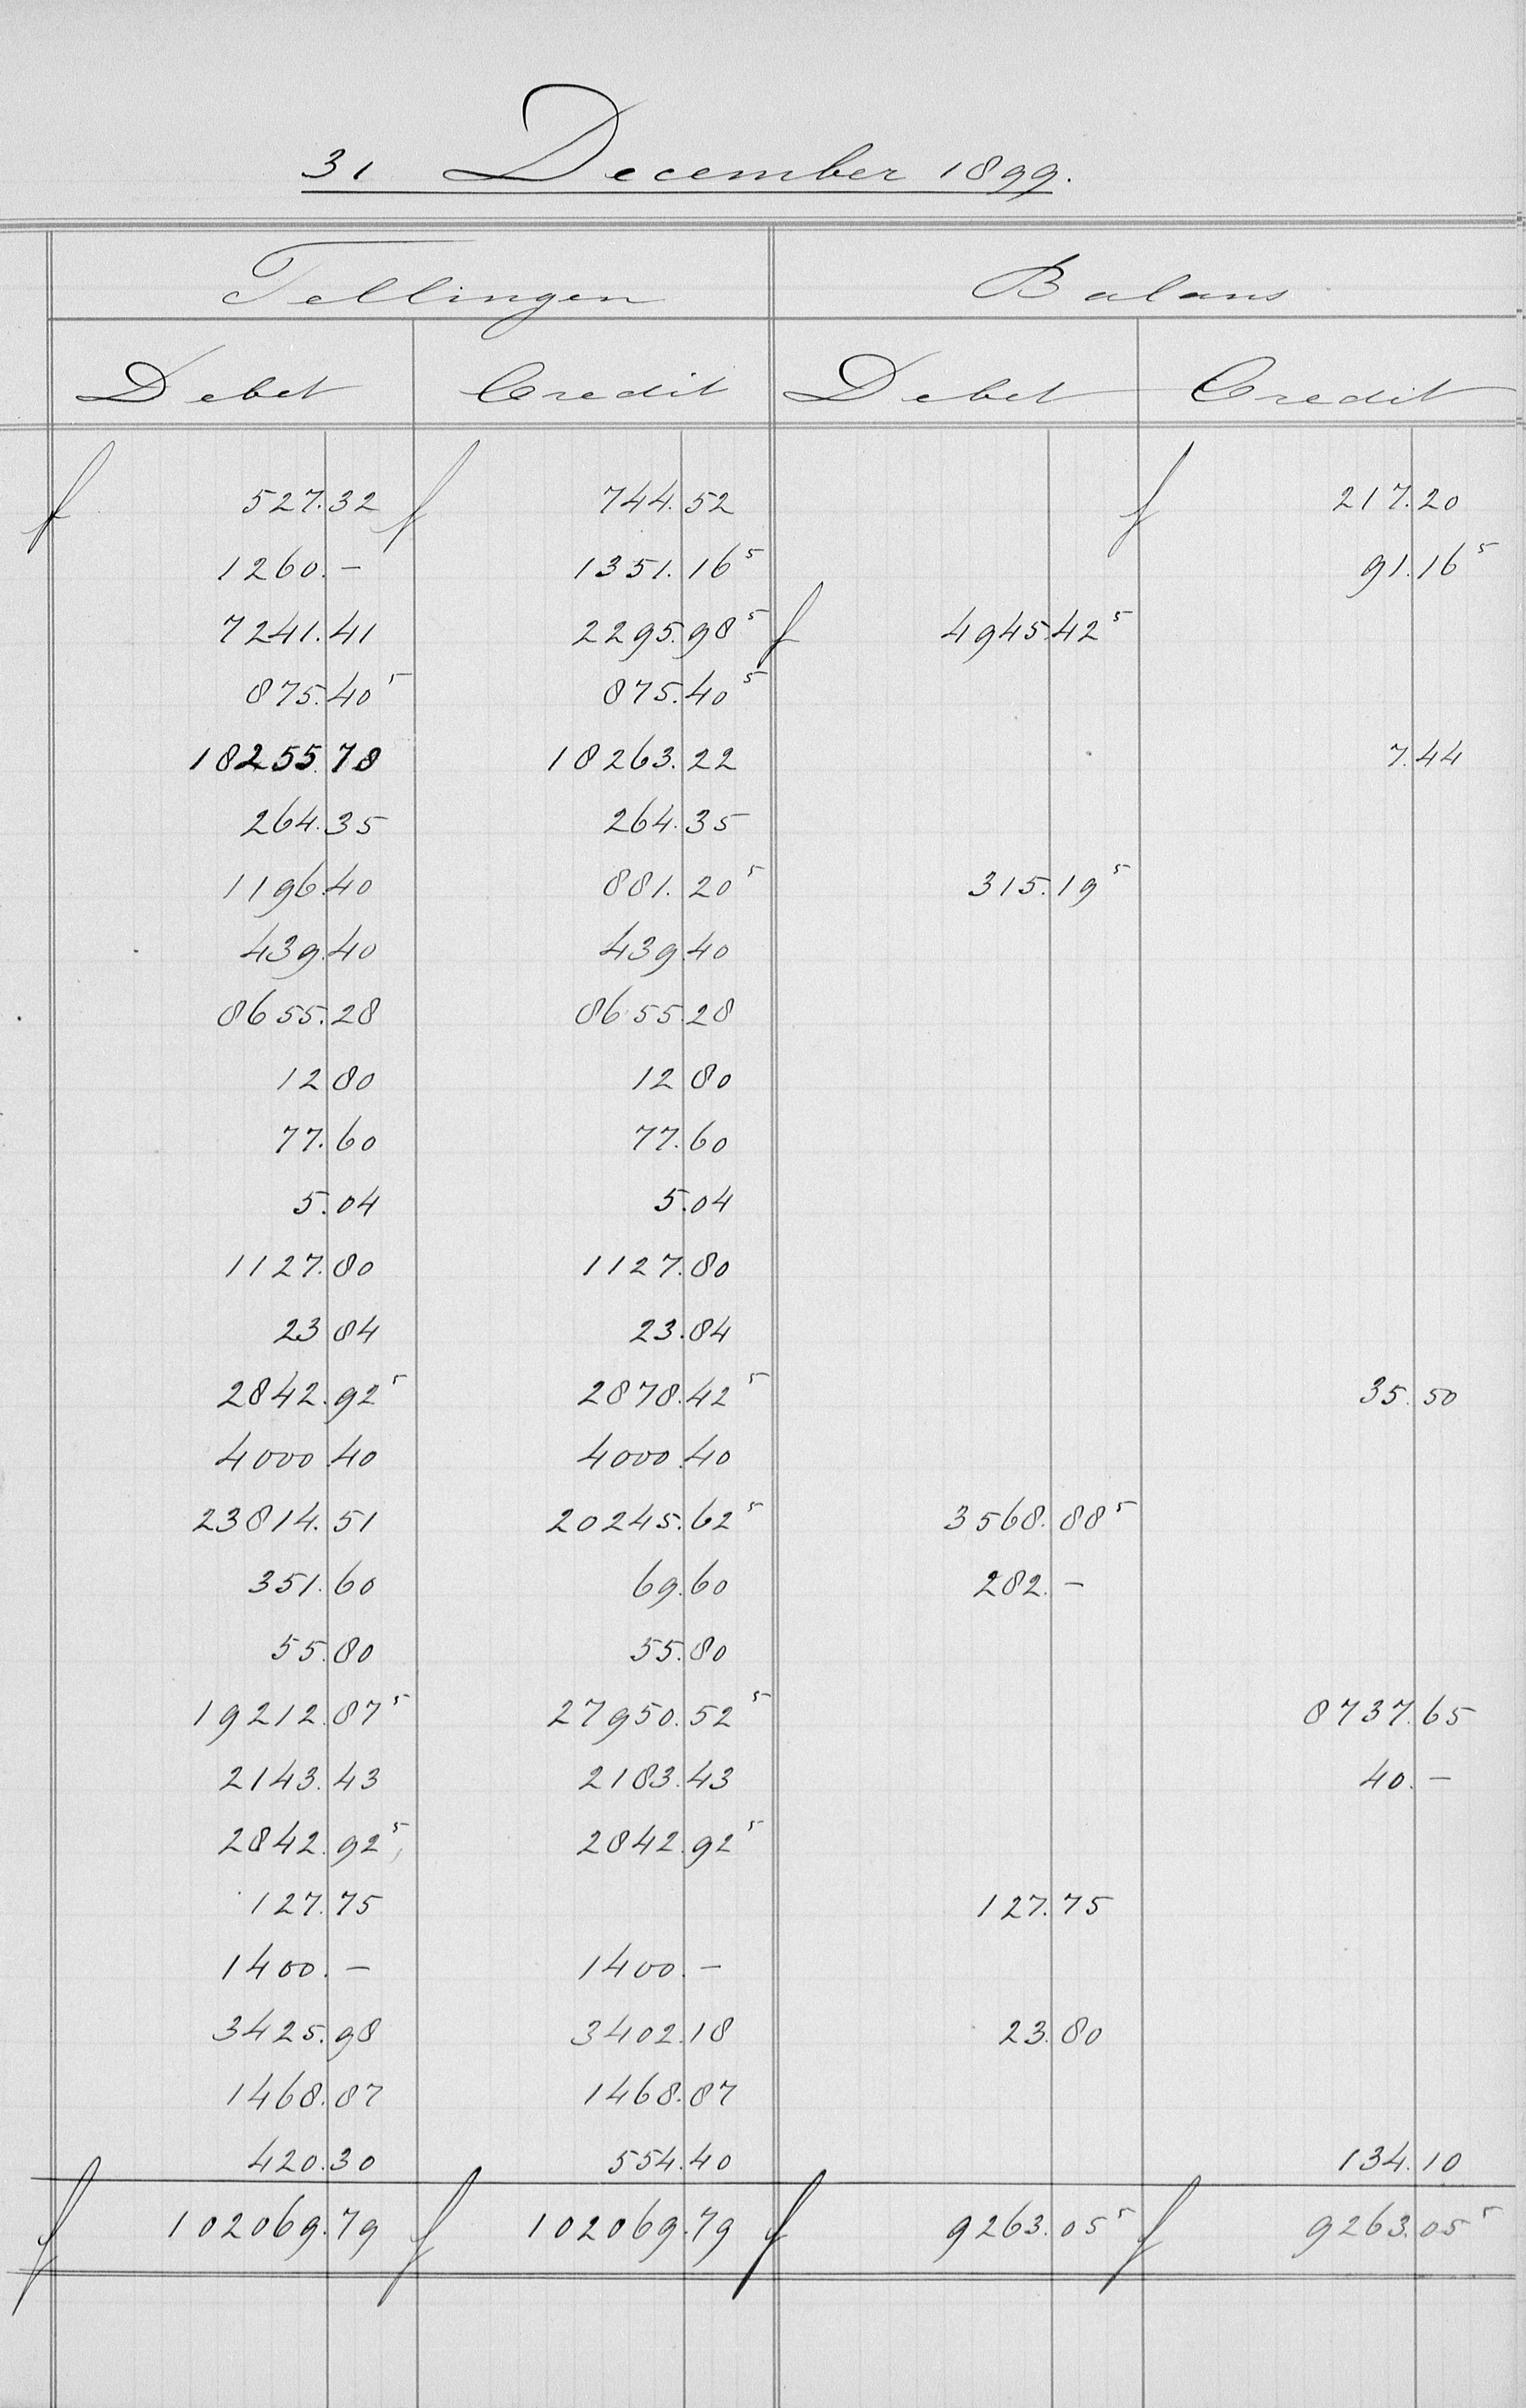 31 December 1899.
Tellingen Balans
Debet Credit Debet Credit
f 527.32 f 744.52 f 217.20
1260.- 1351.16⁵ 91.16⁵
7241.41 2295.98⁵ f 4945.42⁵
875.40⁵ 875.40⁵
18255.78 18263.22 7.44
264.35 264.35
1196.40 881.20⁵ 315.19⁵
439.40 439.40
8655.28 8655.28
12 80 12 80
77.60 77.60
5.04 5.04
1127.80 1127.80
23 84 23.84
2842.92⁵ 2878.42⁵ 35.50
4000.40 4000.40
23814.51 20245.62⁵ 3568.88⁵
351.60 69.60 282.-
55.80 55.80
19212.87⁵ 27950.52⁵ 8737.65
2143.43 2183.43 40.-
2842.92⁵ 2842.92⁵
127.75 127.75
1400.- 1400.-
3425.98 3402.18 23.80
1468.87 1468.87
420.30 554.40 134.10
f 102069.79 f 102069.79 f 9263.05⁵ f 9263.05⁵